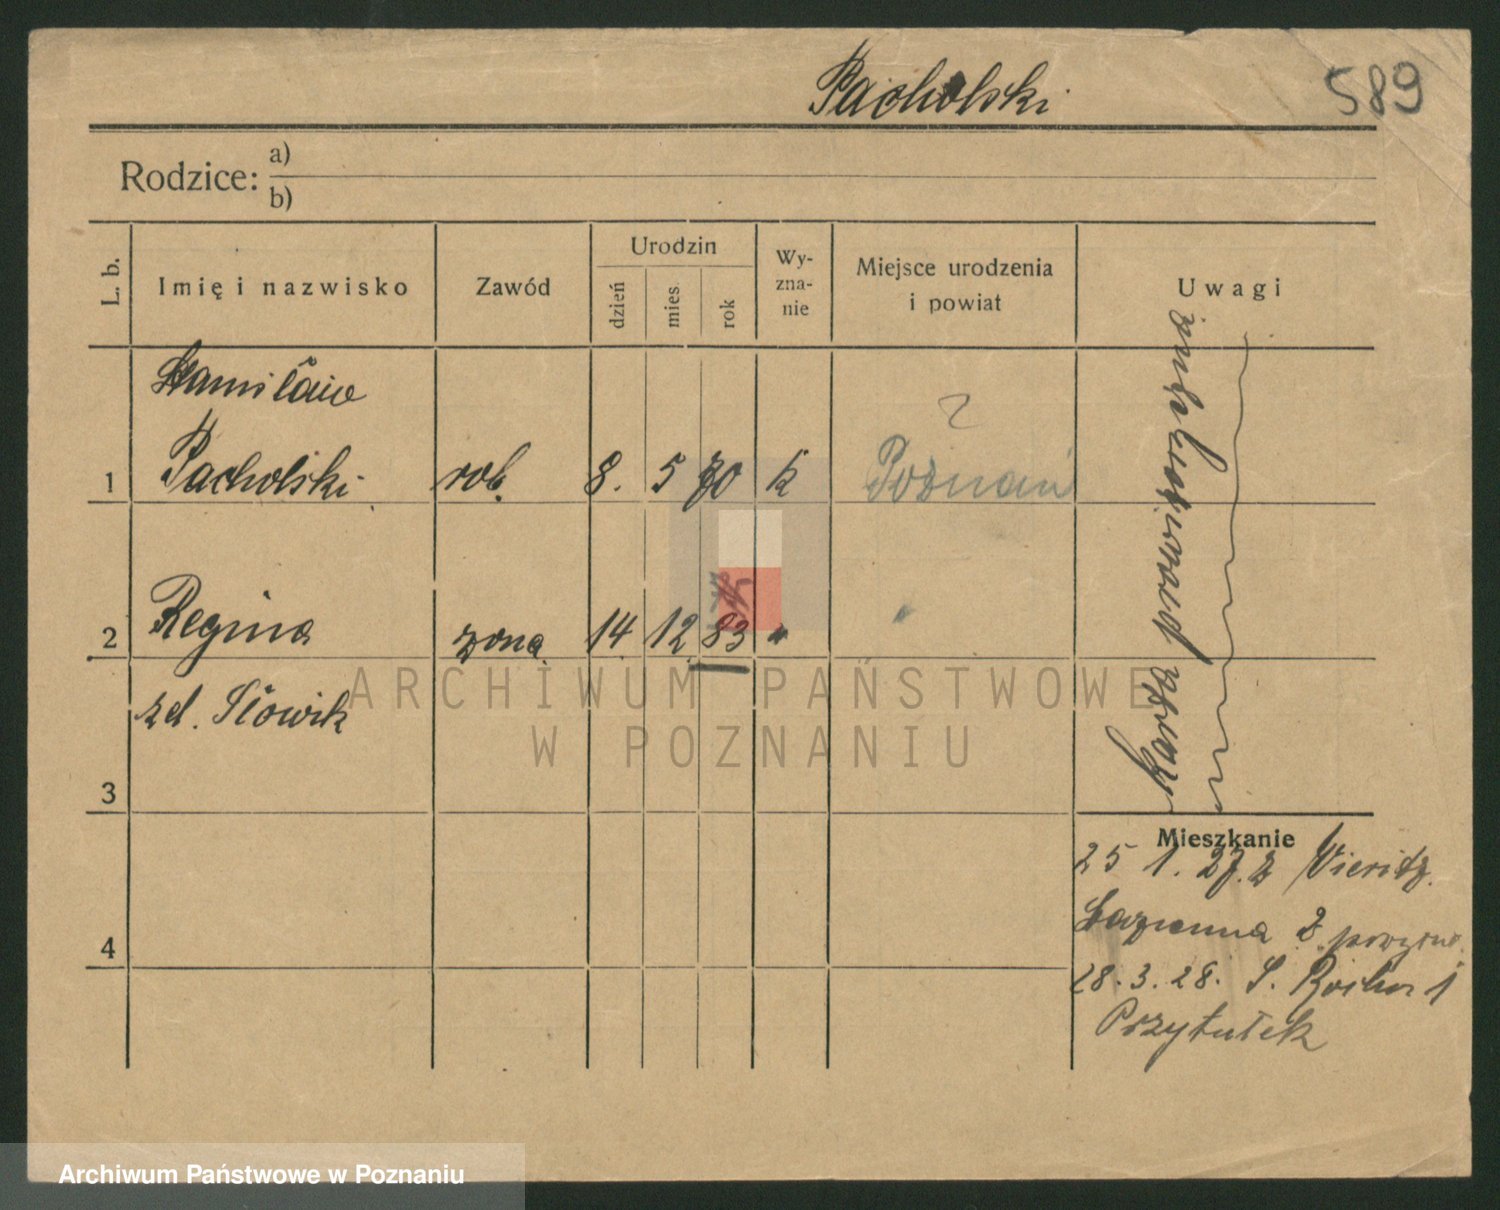 Pacholski
589
Rodzice: a)
b)
L. b.
Imię i nazwisko
Zawód
Urodzin
dzień
mies
rok
Wy-
zna-
nie
Miejsce urodzenia
i powiat
Uwagi
1
Stanisław
Pacholski rob. 8. 5 70 k
?
Poznań
2 Regina żona 14 12 83 "
zd. Słowik
3
4
Mieszkanie
25 1. 27. z
Łazienna 2
28.3.28. Ś. Rocha 1
Przytułek
ARCHIWUM PAŃSTWOWE
W POZNANIU
Archiwum Państwowe w Poznaniu